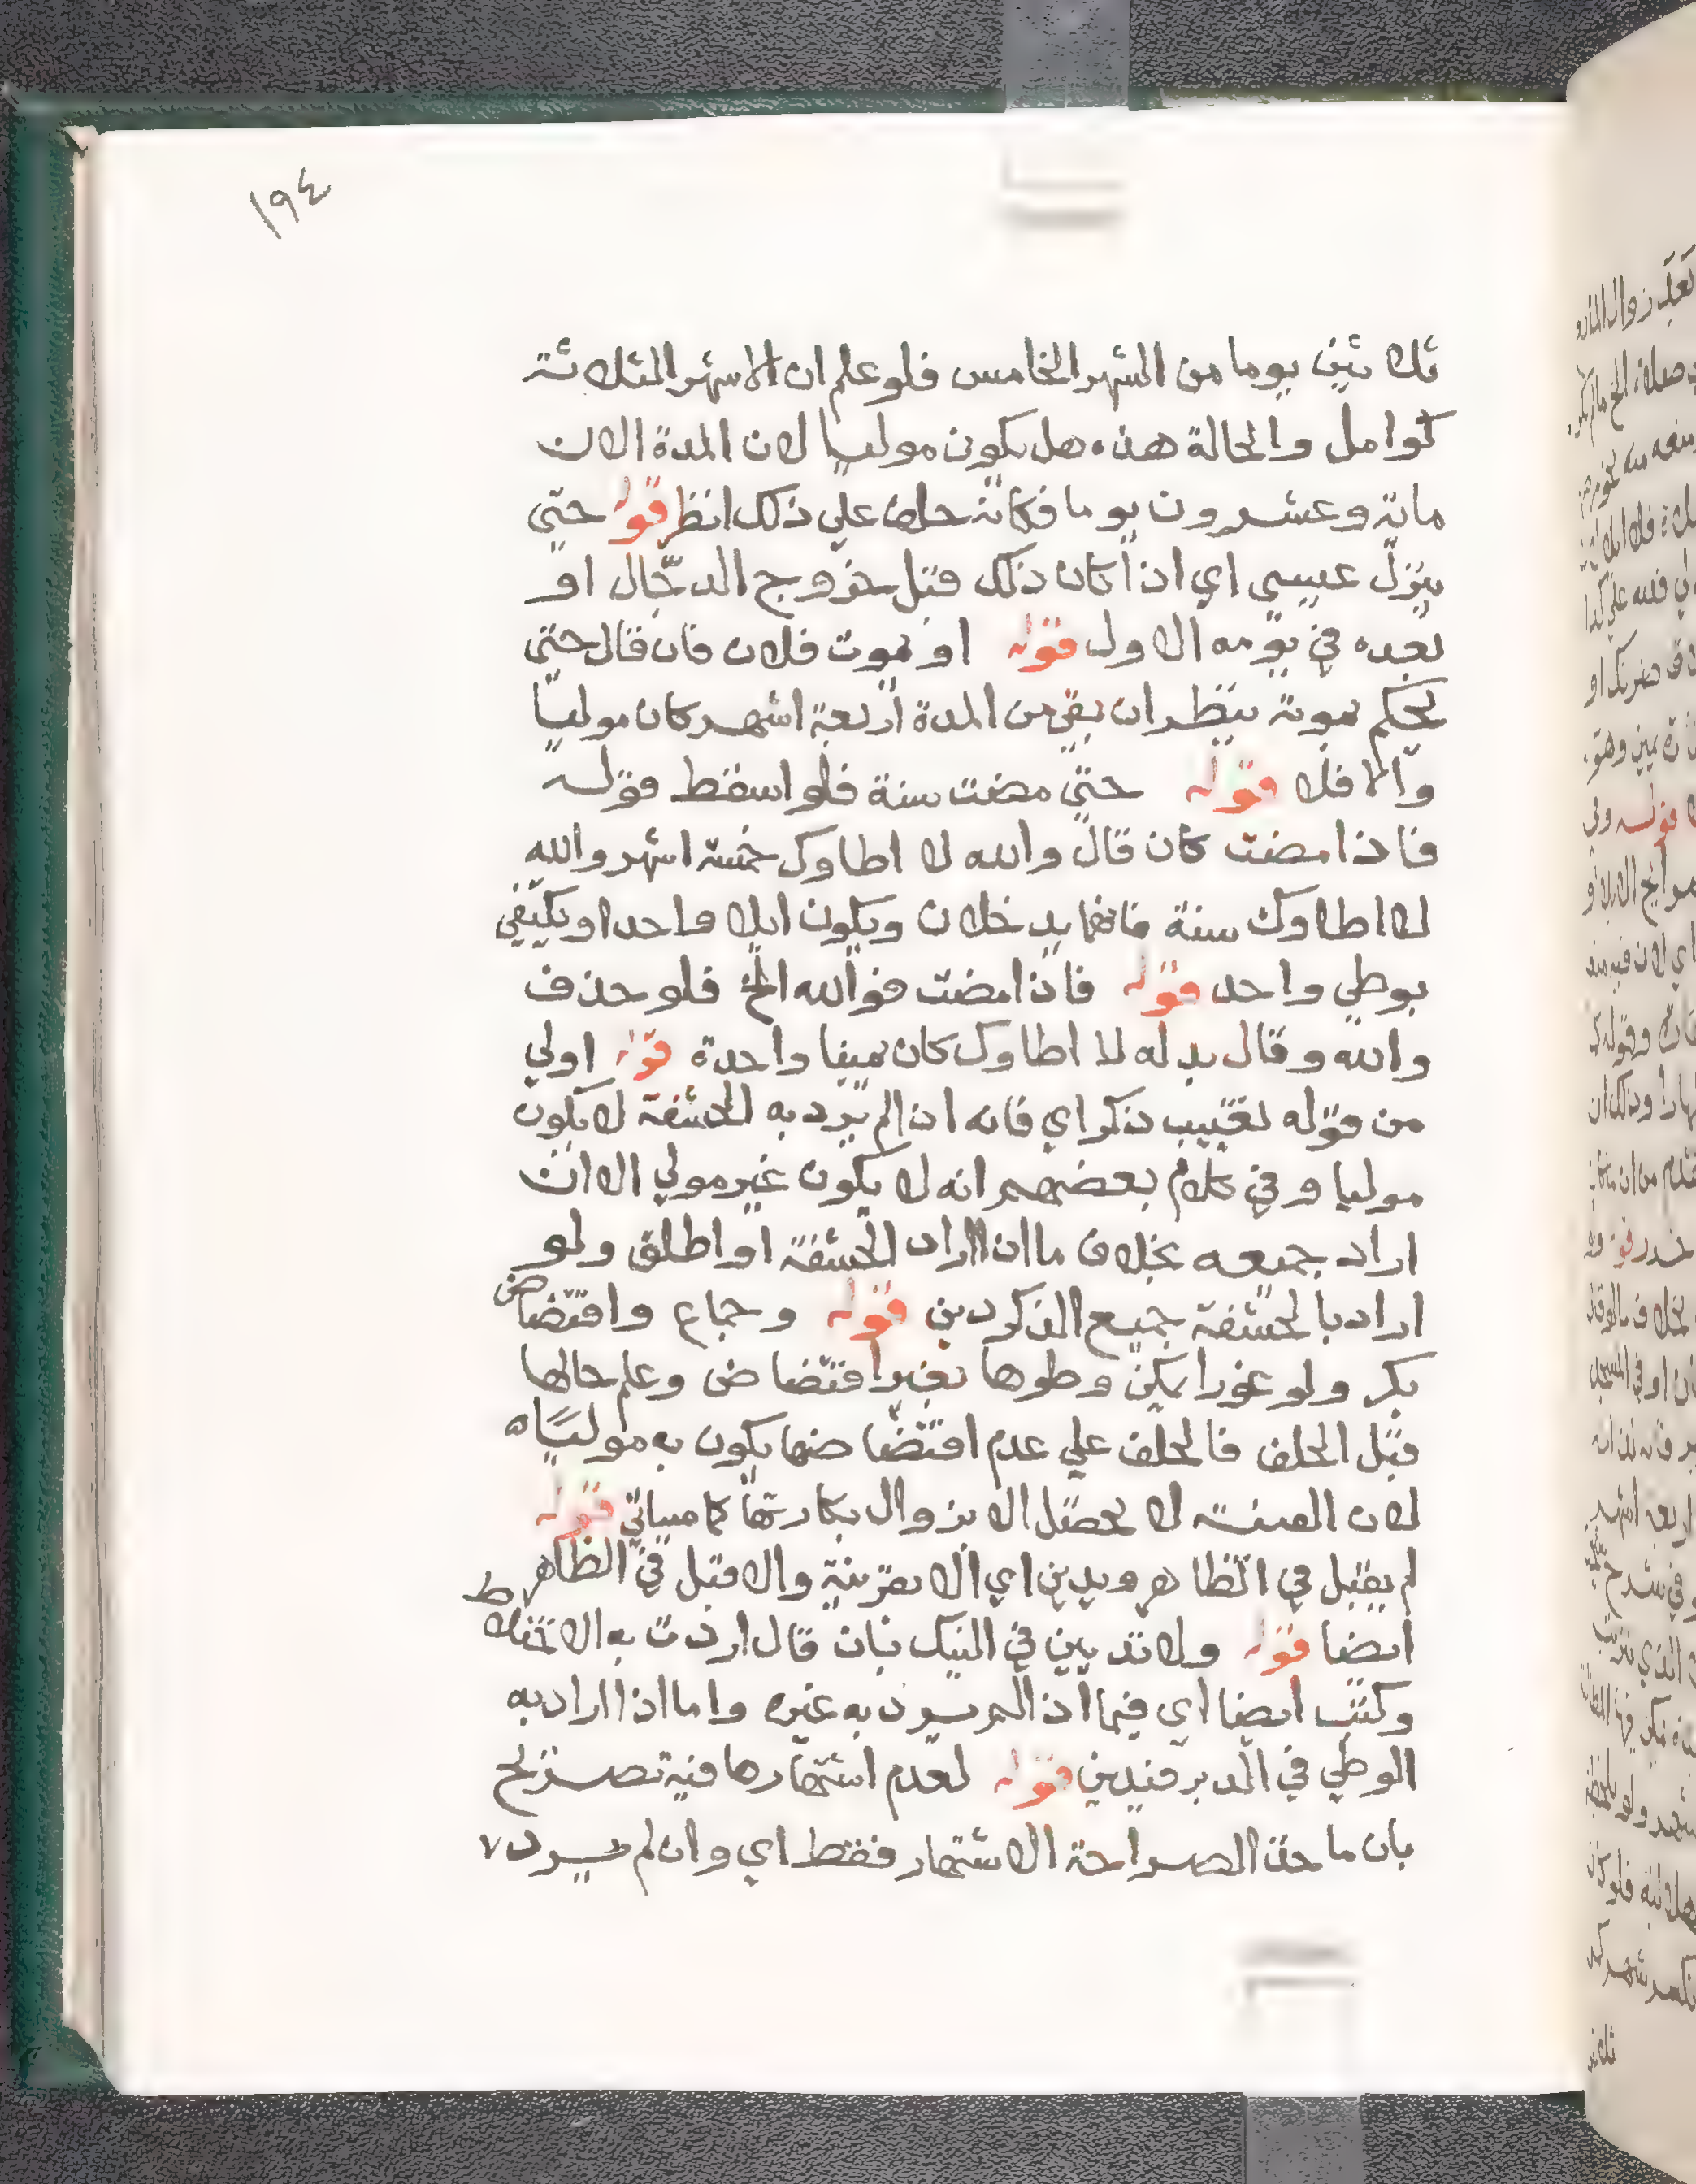 ١٩٤
ثلاثين يوما من الشهر الخامس فلو علم ان الاشهر الثلاثة
كوامل والحالة هذه هل يكون موليا لان المدة الان
ماية وعشرون يوما فكانه حلف علي ذلك انظر قوله حتي
ينزل عيسي اي اذا كان ذلك قبل خروج الدجال او
بعده في يومه الاول قوله او يموت فلان فان قال حتي
يحكم بموته ينظر ان بقي من المدة اربعة اشهر كان موليا
والا فلا قوله حتي مضت سنة فلو اسقط قوله
فاذا مضت كان قال والله لا اطاوك خمسة اشهر والله
لا اطاوك سنة فانهما يدخلان ويكون ايلا واحدا ويكتفي
بوطي واحد قوله فاذا مضت فوالله الخ فلو حذف
والله وقال بدله لا اطاوك كان يمينا واحدة قوله اولي
من قوله تغييب ذكر اي فانه اذا لم يرد به الحشفة لا يكون
موليا وفي كلام بعضهم انه لا يكون غير مولي الا ان
اراد جميعه بخلاف ما ان اراد الحشفة او اطلق ولو
اراد بالحشفة جميع الذكر دين قوله وجماع وافتضاض
بكر ولو غورا يمكن وطوها بغير افتضاض وعلم حالها
قبل الحلف فالحلف علي عدم افتضاضها يكون به موليا
لان الفيئة لا يحصل الا بزوال بكارتها كما سياتي قوله
لم يقبل في الظاهر ويدين اي الا بقرينة والا قبل في الظاهر ط
ايضا قوله ولا تديين في النيك فان قال اردت به الاختلاط
وكتب ايضا اي فيما اذا لم يرد به غيره واما اذا اراد به
الوطي في الدبر فيدين قوله لعدم اشتهارها فيه تصريح
بان ماخذ الصراحة الاشتهار فقط اي وان لم يرد